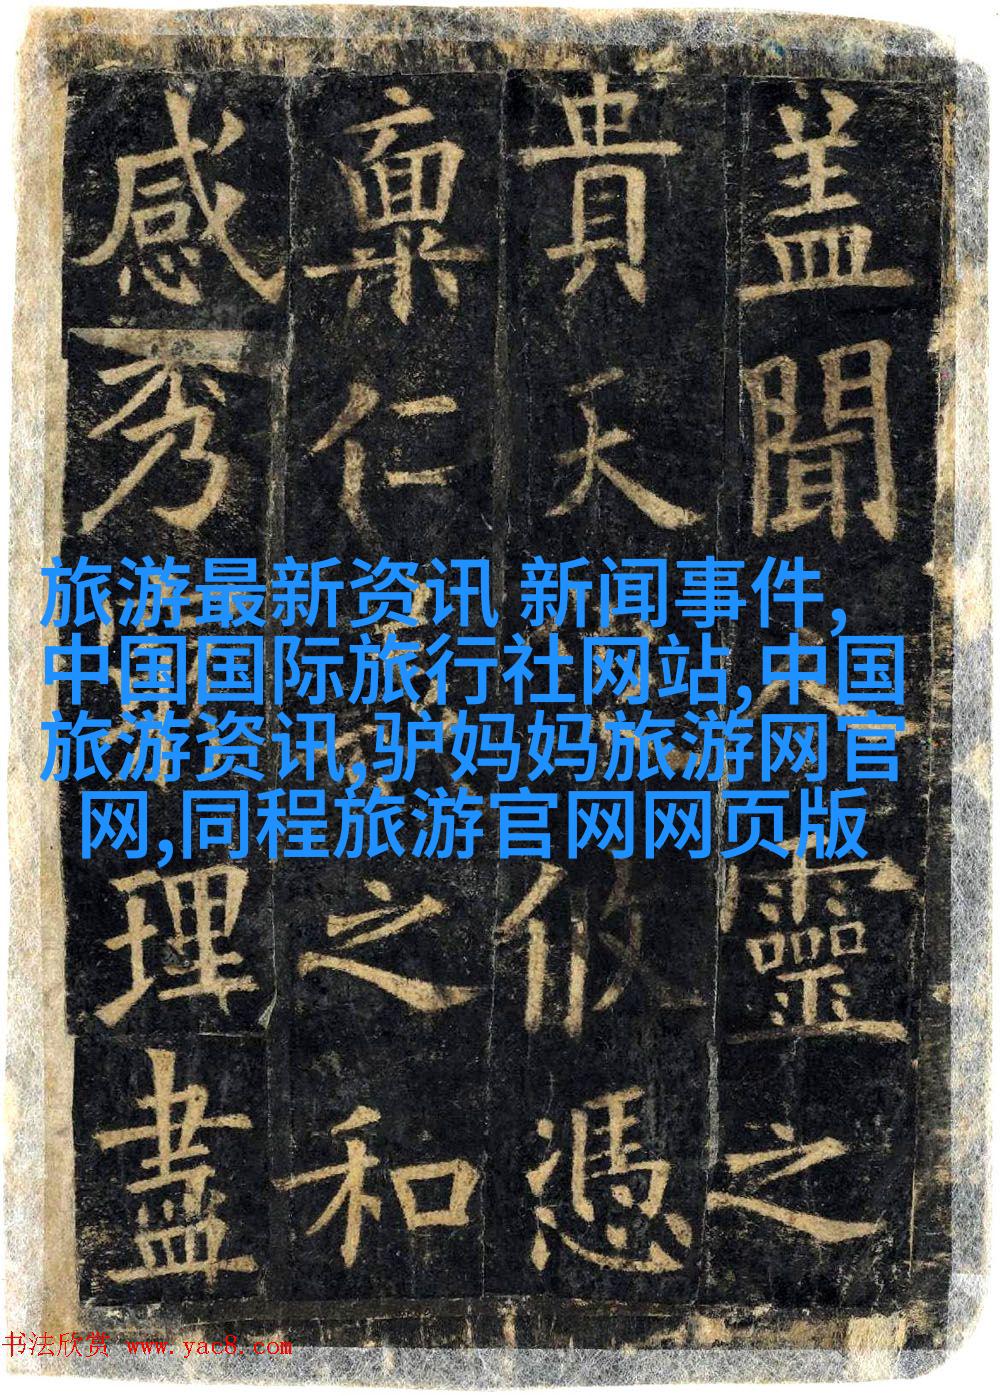 盖聞靈之
貴天攸憑
稟仁之和
感秀理盡
旅游最新资讯 新闻事件,
中国国际旅行社网站,中国
旅游资讯,驴妈妈旅游网官
网,同程旅游官网网页版
书法欣赏 www.yac8.com